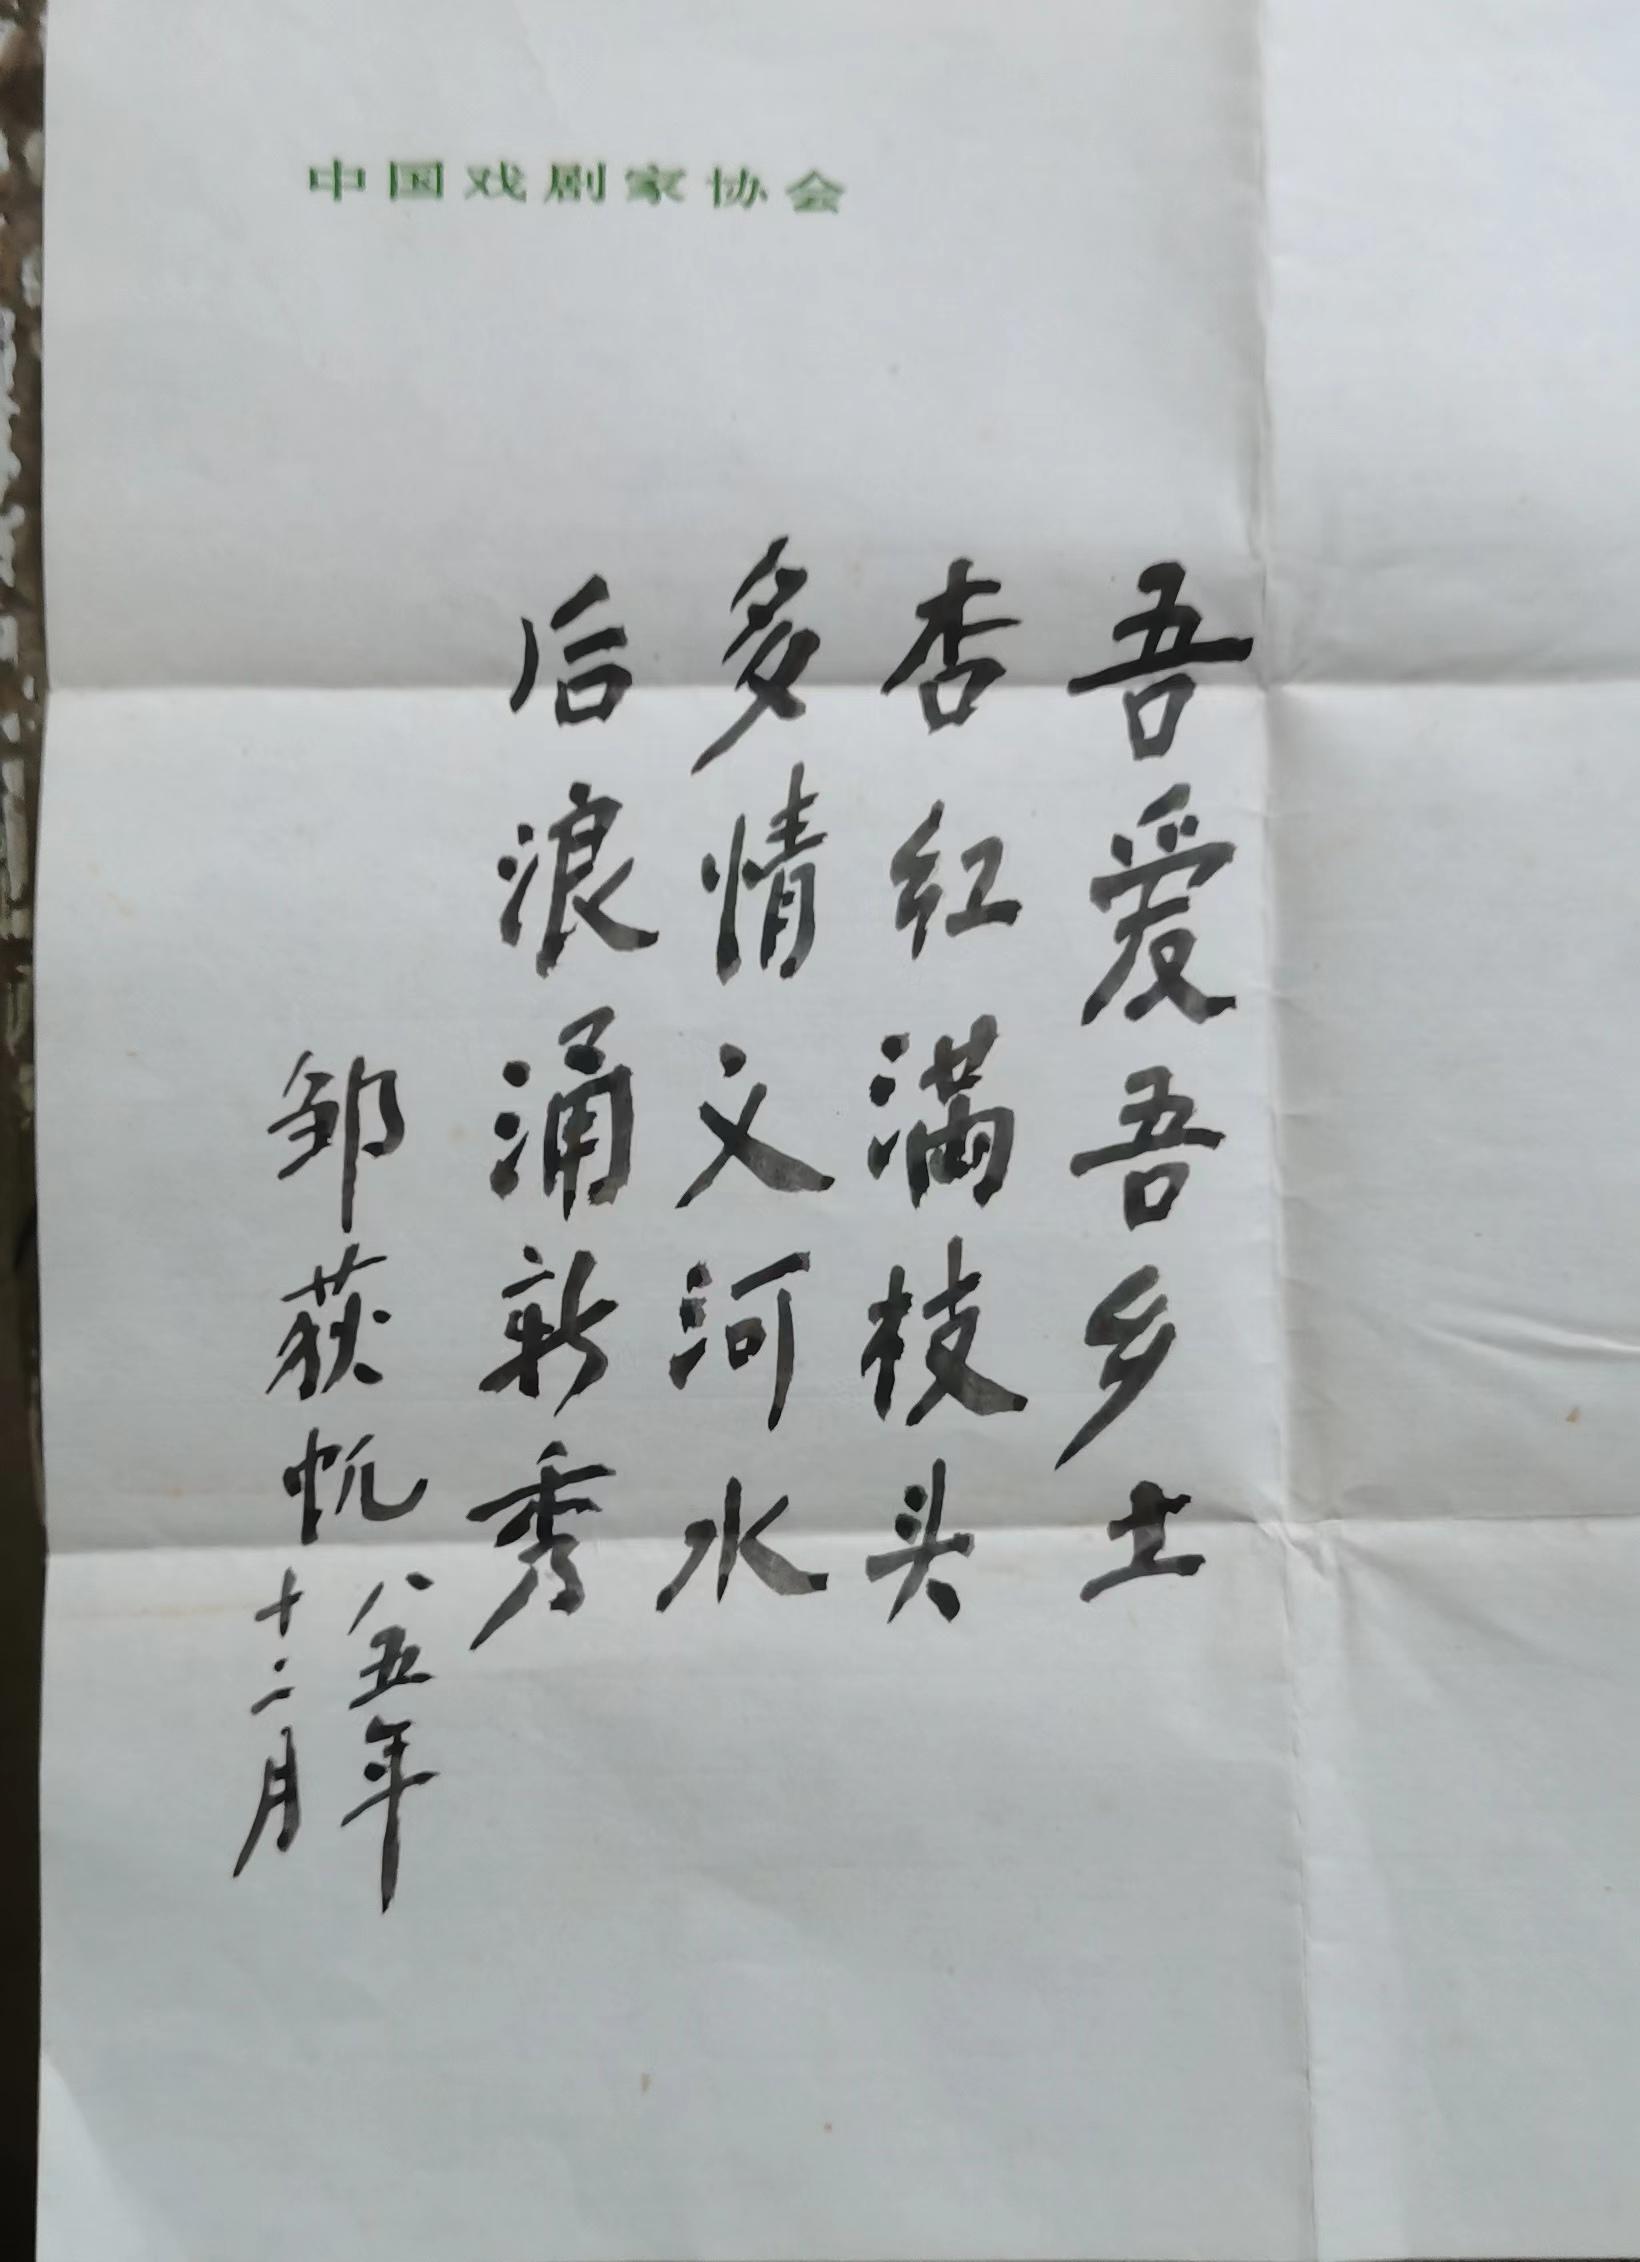 中国戏剧家协会
吾爱吾乡土
杏红满枝头
多情义河水
后浪涌新秀
邹荻帆 八五年
十二月